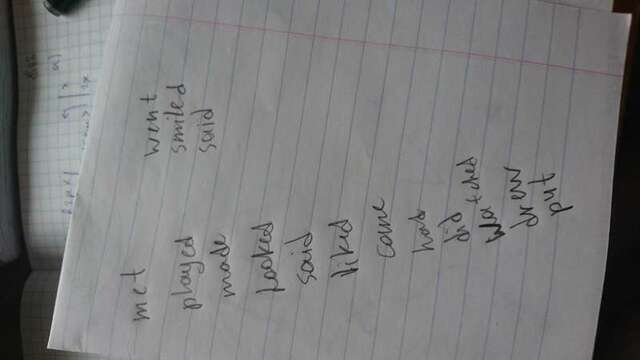 met
played
made
looked
said
liked
came
had
did
watched
drew
put
went
smiled
said